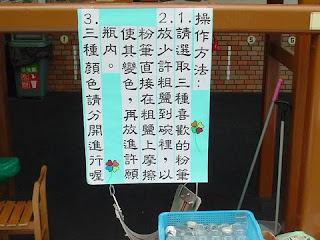 操作方法：
1.請選取三種喜歡的粉筆
2.放少許粗鹽到碗裡，以
粉筆直接在粗鹽上摩擦
使其變色，再放進許願
瓶內。
3.三種顏色請分開進行喔